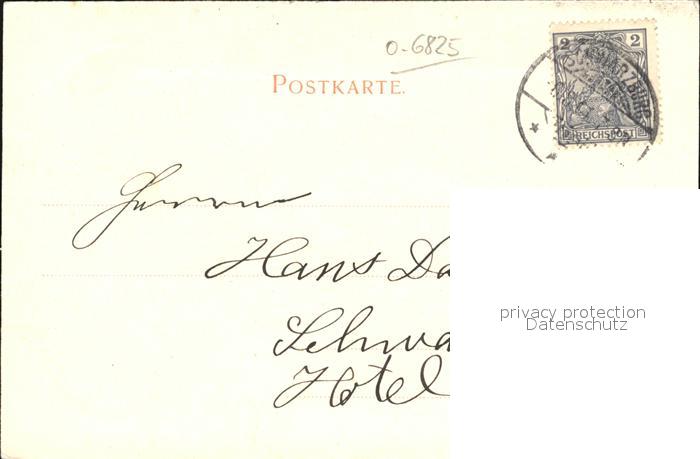 0-6825
POSTKARTE.
2 2
REICHSPOST
SCHWARZBURG
Herrn
Hans Da
Schwa
Hotel
privacy protection
Datenschutz